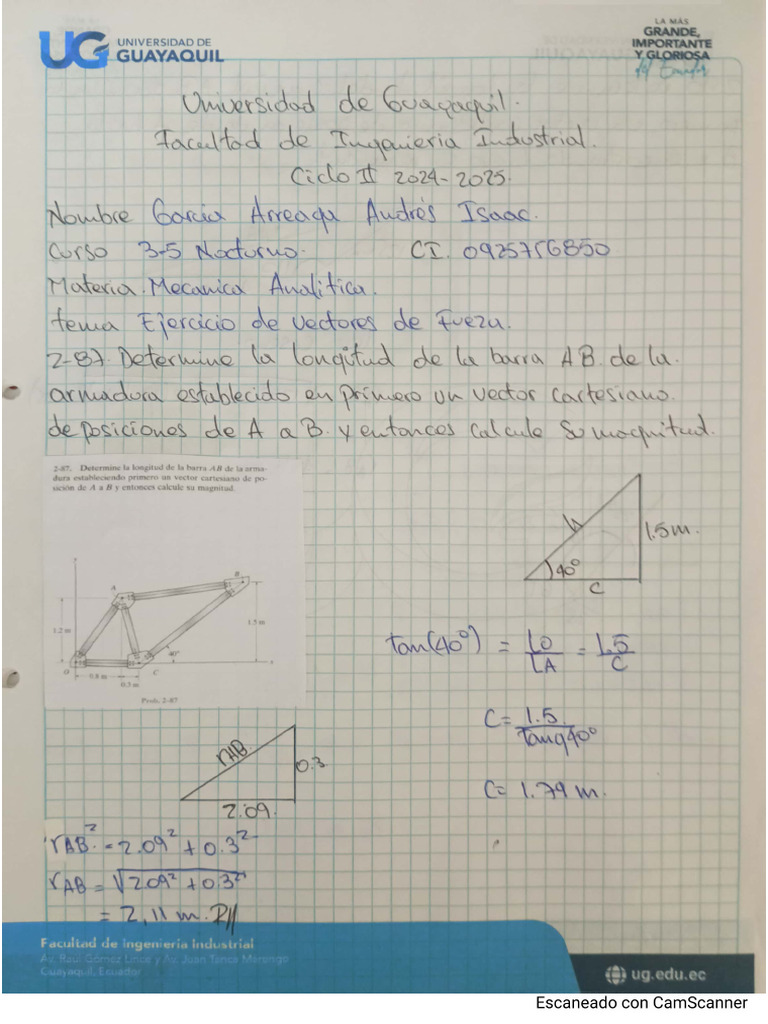 UG UNIVERSIDAD DE
GUAYAQUIL
LA MÁS
GRANDE,
IMPORTANTE
Y GLORIOSA
del Ecuador
Universidad de Guayaquil.
Facultad de Ingenieria Industrial.
Ciclo II 2024-2025.
Nombre Garcia Arreaga Andrés Isaac.
Curso 3-5 Nocturno. CI. 0925756850
Materia. Mecanica Analitica.
tema Ejercicio de vectores de Fuerza.
2-87. Determine la longitud de la barra AB. de la.
armadura establecido en primero un vector cartesiano.
de posiciones de A a B. y entonces calcule su magnitud.
2-87. Determine la longitud de la barra AB de la arma-
dura estableciendo primero un vector cartesiano de po-
sición de A a B y entonces calcule su magnitud.
A
B
1.2 m
1.5 m
40°
O
0.8 m
C
0.3 m
Prob. 2-87
h
1.5 m.
40°
C
tan(40°) = LO/LA = 1.5/C
C = 1.5/Tang40°
C= 1.79 m.
rAB
0.3
2.09.
rAB.² = 2.09² + 0.3²
rAB = √2.09² + 0.3²
= 2,11 m. R//
Facultad de Ingeniería Industrial
Av. Raúl Gómez Lince y Av. Juan Tanca Marengo
Guayaquil, Ecuador
ug.edu.ec
Escaneado con CamScanner